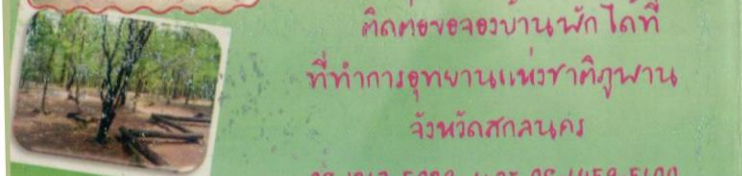 ติดต่อขอจองบ้านพักได้ที่
ที่ทำการอุทยานแห่งชาติภูพาน
จังหวัดสกลนคร